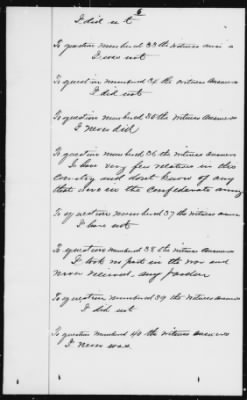 6
I did not
To question numbered 33 the witness answers
I was not
To question numbered 34 the witness answers
I did not
To question numbered 35 the witness answers
I never did
To question numbered 36 the witness answers
I have very few relatives in this
country and dont know of any
that were in the Confederate army
To question numbered 37 the witness answers
I have not
To question numbered 38 the witness answers
I took no part in the war and
never received any pardon
To question numbered 39 the witness answers
I did not
To question numbered 40 the witness answers
I never was